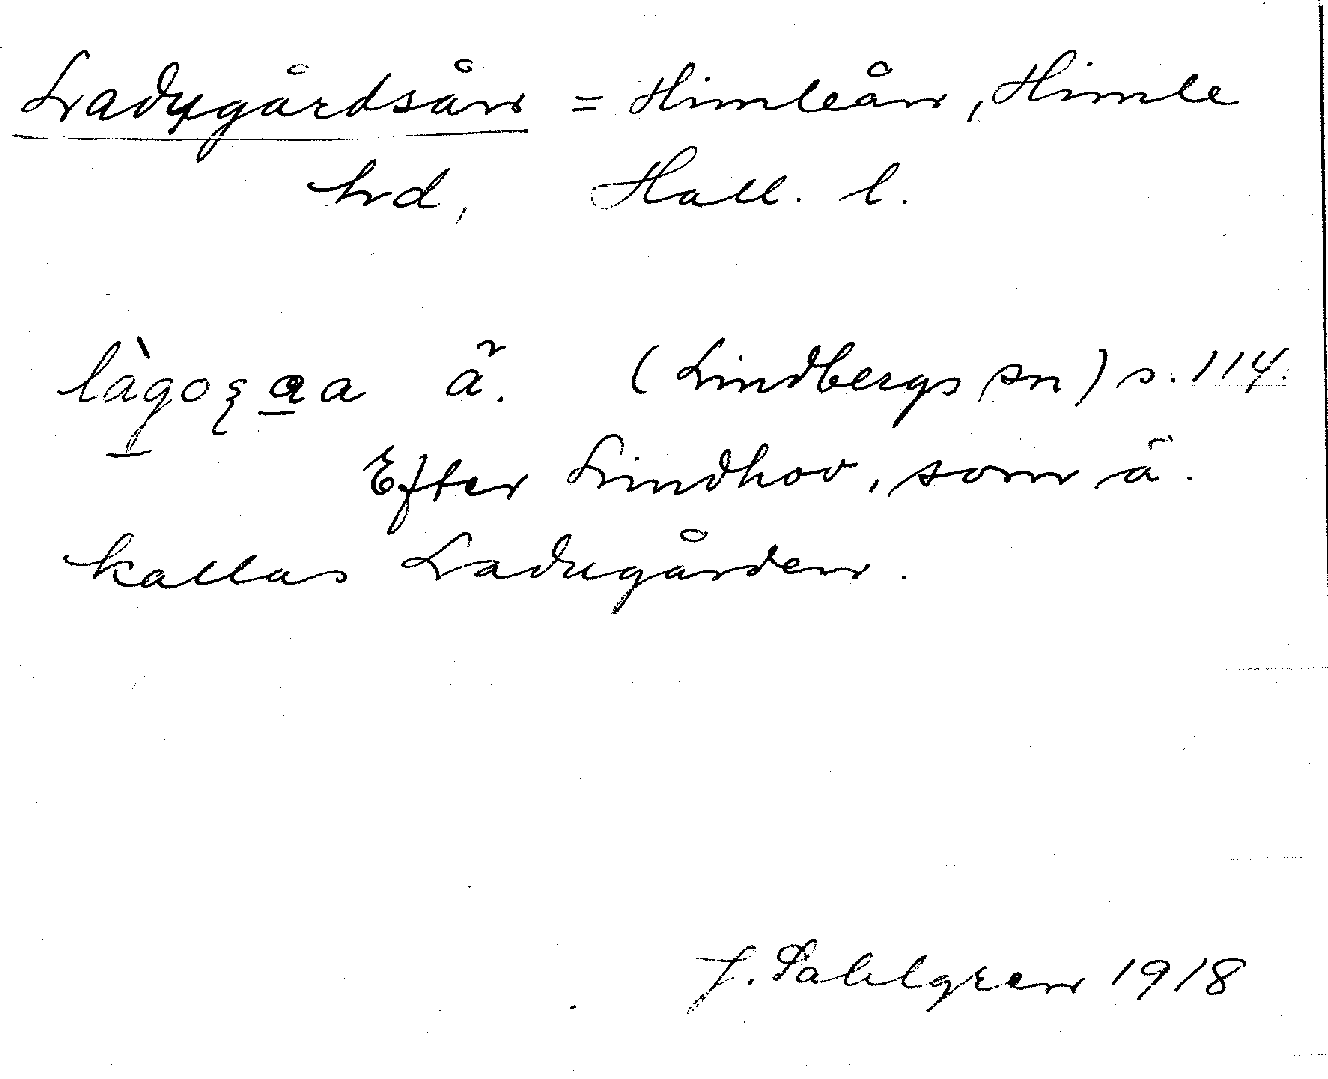 Ladugårdsån = Himleån, Himle
hrd, Hall. l.
ä. (Lindbergs sn) s. 114.
Efter Lindhov, som ä.
kallas Ladugården.
J. Sahlgren 1918